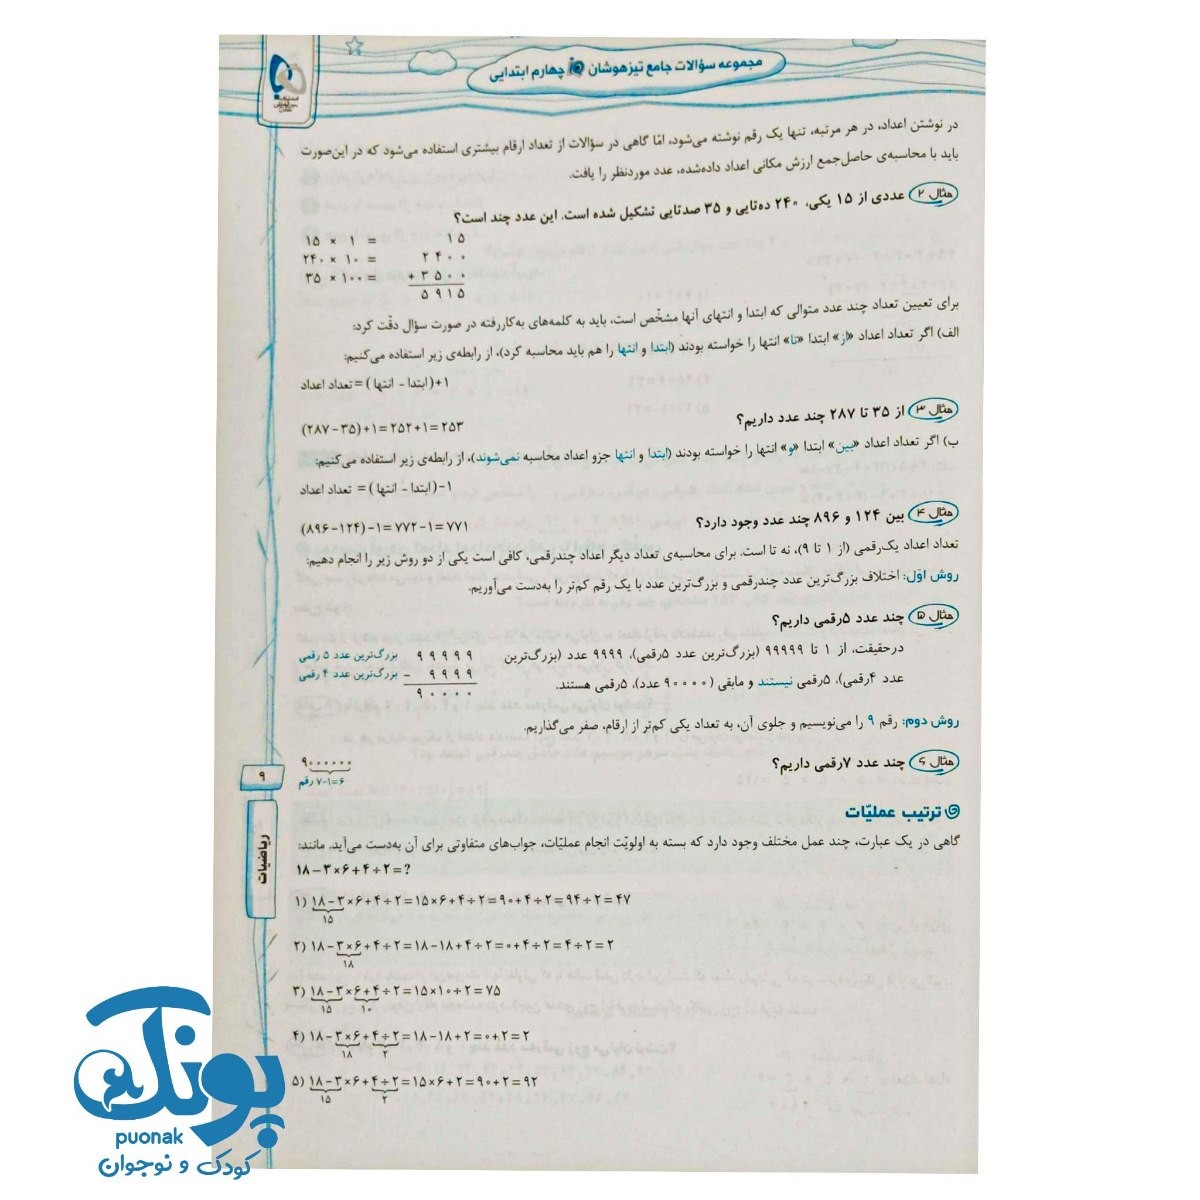 مجموعه سؤالات جامع تیزهوشان چهارم ابتدایی
در نوشتن اعداد، در هر مرتبه، تنها یک رقم نوشته می‌شود، امّا گاهی در سؤالات از تعداد ارقام بیشتری استفاده می‌شود که در این‌صورت
باید با محاسبه‌ی حاصل‌جمع ارزش مکانی اعداد داده‌شده، عدد موردنظر را یافت.
مثال ۲ عددی از ۱۵ یکی، ۲۴۰ ده‌تایی و ۳۵ صدتایی تشکیل شده است. این عدد چند است؟
۱۵ × ۱ = ۱۵
۲۴۰ × ۱۰ = ۲۴۰۰
۳۵ × ۱۰۰ = + ۳۵۰۰
۵۹۱۵
برای تعیین تعداد چند عدد متوالی که ابتدا و انتهای آنها مشخّص است، باید به کلمه‌های به‌کاررفته در صورت سؤال دقّت کرد:
الف) اگر تعداد اعداد «از» ابتدا «تا» انتها را خواسته بودند (ابتدا و انتها را هم باید محاسبه کرد)، از رابطه‌ی زیر استفاده می‌کنیم:
تعداد اعداد = (ابتدا - انتها) + ۱
مثال ۳ از ۳۵ تا ۲۸۷ چند عدد داریم؟
(۲۸۷-۳۵)+۱=۲۵۲+۱=۲۵۳
ب) اگر تعداد اعداد «بین» ابتدا «و» انتها را خواسته بودند (ابتدا و انتها جزو اعداد محاسبه نمی‌شوند)، از رابطه‌ی زیر استفاده می‌کنیم:
تعداد اعداد = (ابتدا - انتها) - ۱
مثال ۴ بین ۱۲۴ و ۸۹۶ چند عدد وجود دارد؟
(۸۹۶-۱۲۴)-۱=۷۷۲-۱=۷۷۱
تعداد اعداد یک‌رقمی (از ۱ تا ۹)، نه تا است. برای محاسبه‌ی تعداد دیگر اعداد چندرقمی، کافی است یکی از دو روش زیر را انجام دهیم:
روش اوّل: اختلاف بزرگ‌ترین عدد چندرقمی و بزرگ‌ترین عدد با یک رقم کم‌تر را به‌دست می‌آوریم.
مثال ۵ چند عدد ۵رقمی داریم؟
درحقیقت، از ۱ تا ۹۹۹۹۹ (بزرگ‌ترین عدد ۵رقمی)، ۹۹۹۹ عدد (بزرگ‌ترین
عدد ۴رقمی)، ۵رقمی نیستند و مابقی (۹۰۰۰۰ عدد)، ۵رقمی هستند.
۹۹۹۹۹ بزرگ‌ترین عدد ۵ رقمی
- ۹۹۹۹ بزرگ‌ترین عدد ۴ رقمی
۹۰۰۰۰
روش دوم: رقم ۹ را می‌نویسیم و جلوی آن، به تعداد یکی کم‌تر از ارقام، صفر می‌گذاریم.
مثال ۶ چند عدد ۷رقمی داریم؟
۹۰۰۰۰۰۰
۷-۱=۶ رقم
ترتیب عملیّات
گاهی در یک عبارت، چند عمل مختلف وجود دارد که بسته به اولویّت انجام عملیّات، جواب‌های متفاوتی برای آن به‌دست می‌آید. مانند:
۱۸-۳×۶+۴÷۲=?
۱) ۱۸-۳×۶+۴÷۲=۱۵×۶+۴÷۲=۹۰+۴÷۲=۹۴÷۲=۴۷
۱۵
۲) ۱۸-۳×۶+۴÷۲=۱۸-۱۸+۴÷۲=۰+۴÷۲=۴÷۲=۲
۱۸
۳) ۱۸-۳×۶+۴÷۲=۱۵×۱۰÷۲=۷۵
۱۵ ۱۰
۴) ۱۸-۳×۶+۴÷۲=۱۸-۱۸+۲=۰+۲=۲
۱۸ ۲
۵) ۱۸-۳×۶+۴÷۲=۱۵×۶+۲=۹۰+۲=۹۲
۱۵ ۲
۹
ریاضیات
پونک
puonak
کودک و نوجوان